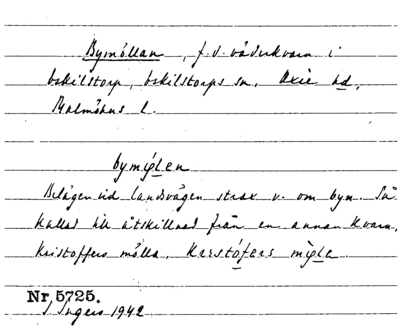 Bymöllan, f.d. väderkvarn i
Eskilstorp, Eskilstorps sn, Oxie hd,
Malmöhus l.
bymỳlen
Belägen vid landsvägen strax v. om byn. Så
kallad till åtskillnad från en annan kvarn,
Kristoffers mölla, Kerstófers mỳlle
Nr 5725.
I. Ingers 1942